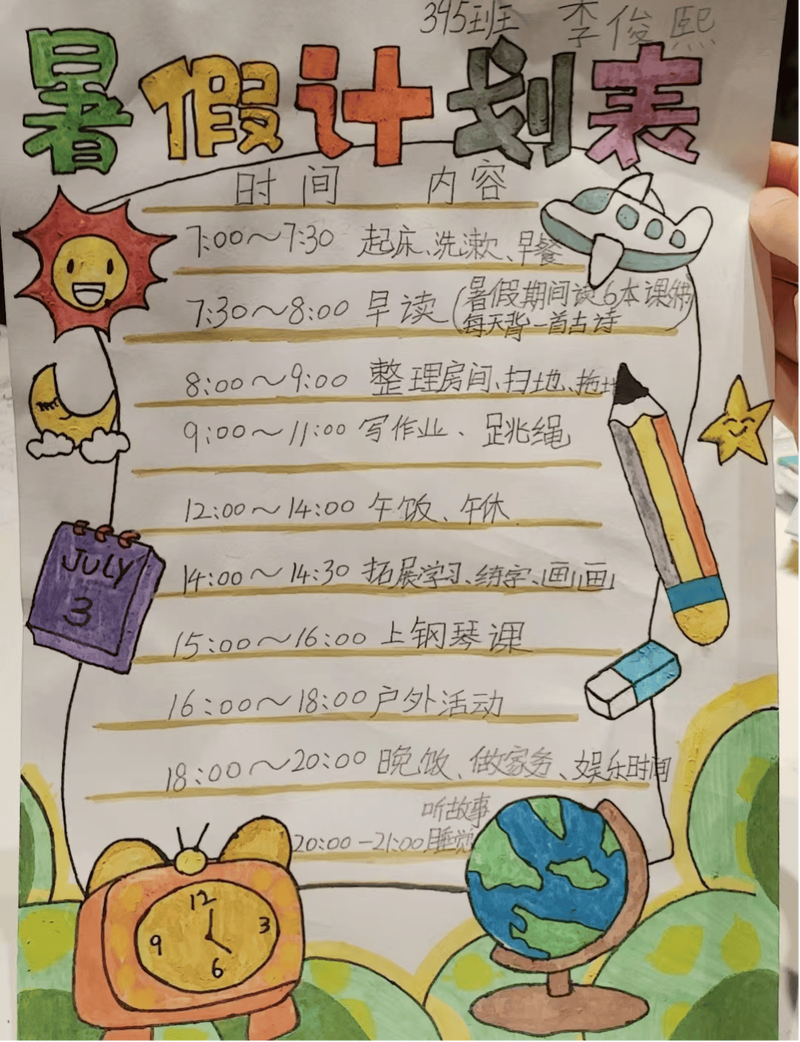 345班 李俊熙
暑假计划表
时间 内容
7:00～7:30 起床、洗漱、早餐
7:30～8:00 早读(暑假期间读6本课外
每天背一首古诗)
8:00～9:00 整理房间、扫地、拖地
9:00～11:00 写作业、跳绳
12:00～14:00 午饭、午休
JULY
3
14:00～14:30 拓展学习、练字、画画
15:00～16:00 上钢琴课
16:00～18:00 户外活动
18:00～20:00 晚饭、做家务、娱乐时间
听故事
20:00-21:00 睡觉
12
9 3
6